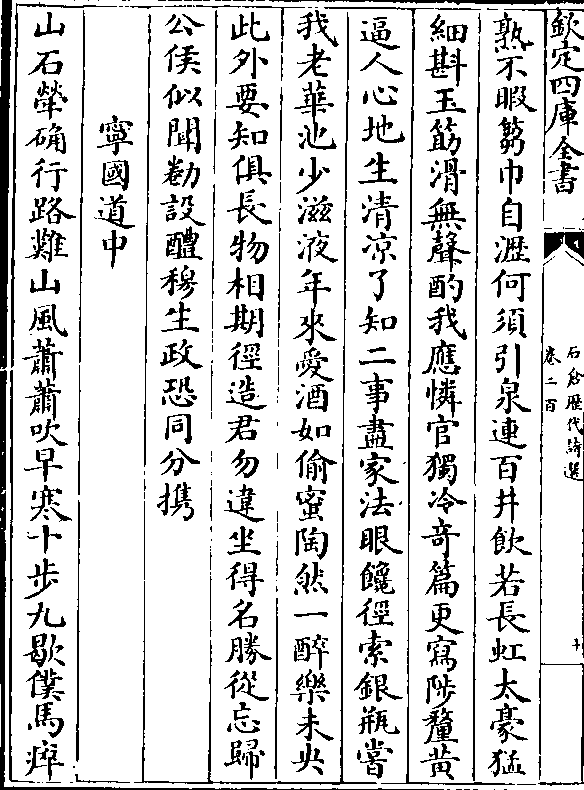 欽定四庫全書
石倉歷代詩選
卷二百
十
熟不暇芻巾自瀝何須引泉連百井飲若長虹太豪猛
細斟玉筯滑無聲酌我應憐官獨冷奇篇更寫陟釐黄
逼人心地生清凉了知二事盡家法眼饞徑索銀瓶嘗
我老華池少滋液年來愛酒如偷蜜陶然一醉樂未央
此外要知俱長物相期徑造君勿違坐得名勝從忘歸
公侯似聞勸設醴穆生政恐同分携
寧國道中
山石犖确行路難山風蕭蕭吹早寒十步九歇僕馬痺